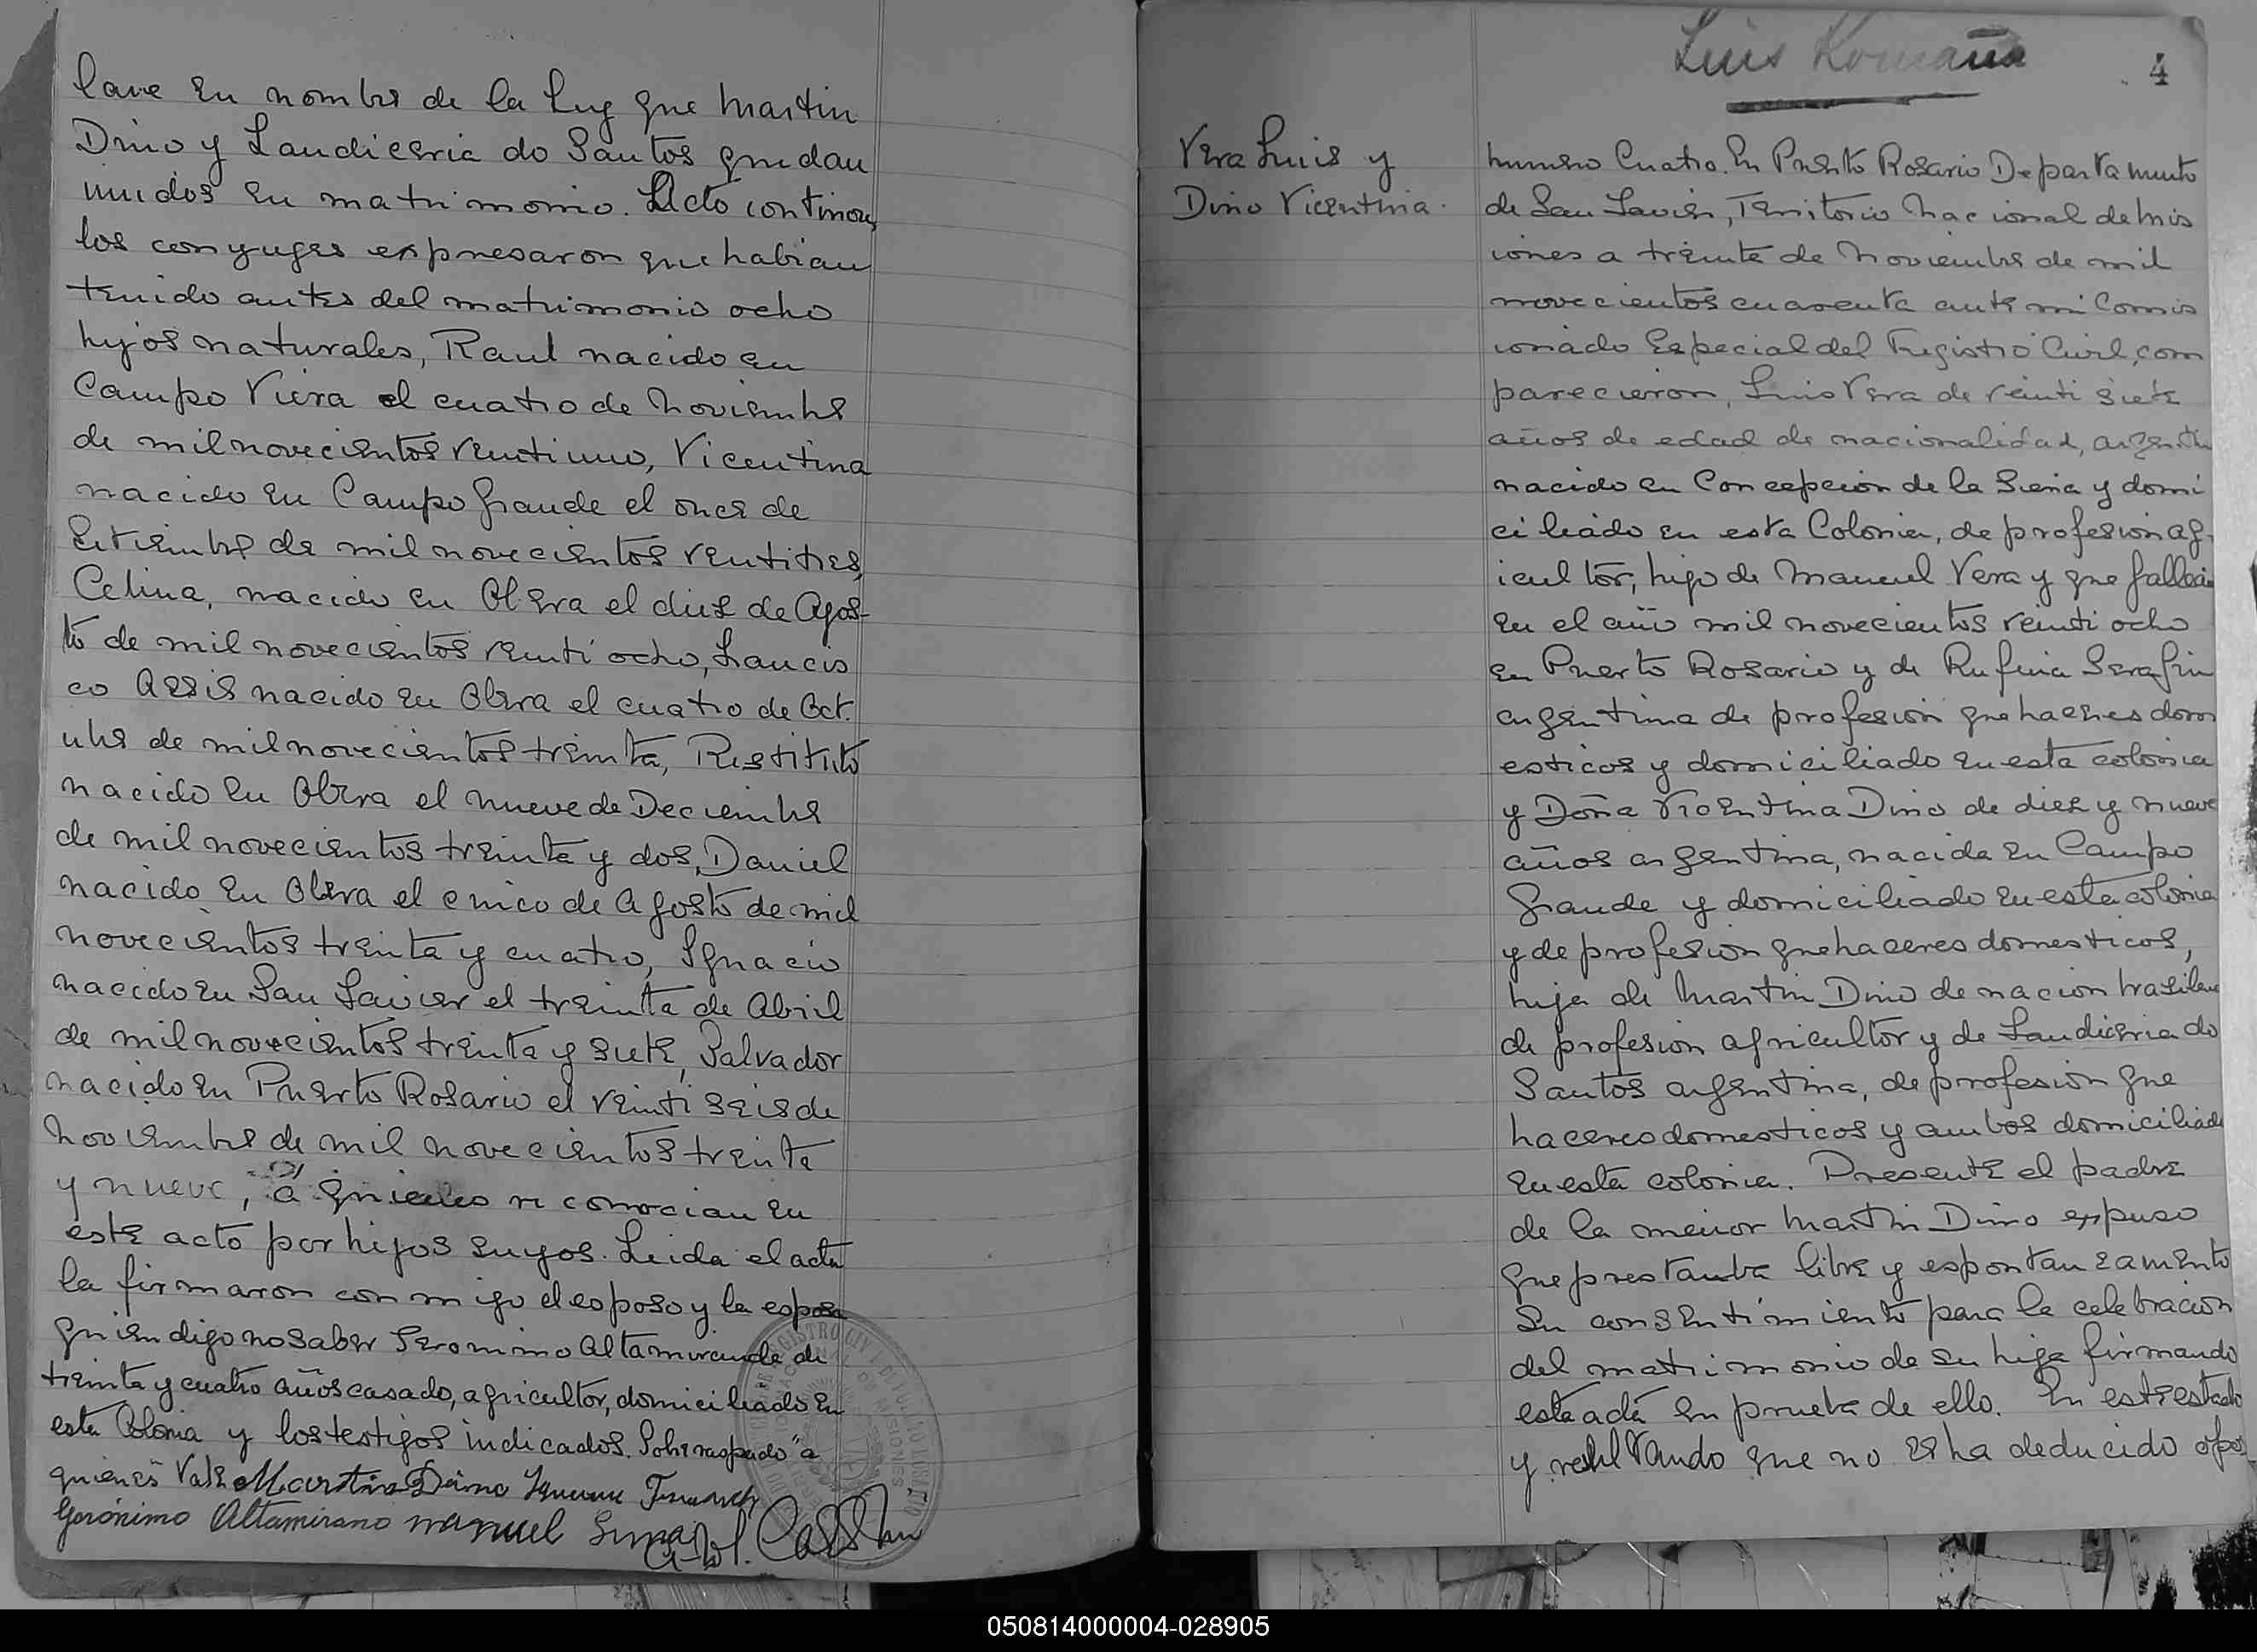 lare en nombre de la Ley que Martin
Dino y Laudiceria do Santos quedan
unidos en matrimonio. Acto continou
los conyuges expresaron que habian
tenido antes del matrimonio ocho
hijos naturales, Raul nacido en
Campo Viera el cuatro de Noviembre
de mil novecientos ventiuno, Vicentina
nacido en Campo Grande el once de
Setiembre de mil novecientos ventitres,
Celina, nacido en Obera el diez de Agos-
to de mil novecientos veinti ocho, Francis
co Assis nacido en Obera el cuatro de Oct.
ubre de mil novecientos treinta, Restituto
nacido en Obera el nueve de Deciembre
de mil novecientos treinta y dos, Daniel
nacido en Obera el cinco de Agosto de mil
novecientos treinta y cuatro, Ignacio
nacido en San Javier el treinta de Abril
de mil novecientos treinta y siete, Salvador
nacido en Puerto Rosario el veinti seis de
Noviembre de mil novecientos treinta
y nueve, a quienes reconocian en
este acto por hijos suyos. Leida el acta
la firmaron con migo el esposo y la esposa
quien digo no saber Geronimo Altamirande de
treinta y cuatro años casado, agricultor, domiciliado en
esta Colonia y los testigos indicados. Sobre raspado "a
quienes" Vale Martin Dino
Gerónimo Altamirano Manuel
Luis Romaña
4
Vera Luis y
Dino Vicentina.
Numero Cuatro. En Puerto Rosario Departamento
de San Javier, Territorio Nacional de Mis
iones a treinta de Noviembre de mil
novecientos cuarenta ante mi Comis
ionado Especial del Registro Civil, com
parecieron, Luis Vera de veinti siete
años de edad de nacionalidad, argentin
nacido en Concepcion de la Siera y domi
ciliado en esta Colonia, de profesion ag-
icultor, hijo de Manuel Vera y que fallecio
en el año mil novecientos veinti ocho
en Puerto Rosario y de Rufina Serafin
argentina de profesion quehaceres dom
esticos y domiciliado en esta colonia
y Doña Vicentina Dino de diez y nueve
años argentina, nacida en Campo
Grande y domiciliado en esta colonia
y de profesion quehaceres domesticos,
hija de Martin Dino de nacion brasilero
de profesion agricultor y de Laudiceria do
Santos argentina, de profesion que
haceres domesticos y ambos domiciliado
en esta colonia. Presente el padre
de la menor Martin Dino expuso
que prestamba libre y espontaneamento
su consentimiento para la celebracion
del matrimonio de su hija firmando
esta acta en prueba de ello. En este estado
y resultando que no se ha deducido opos
050814000004-028905